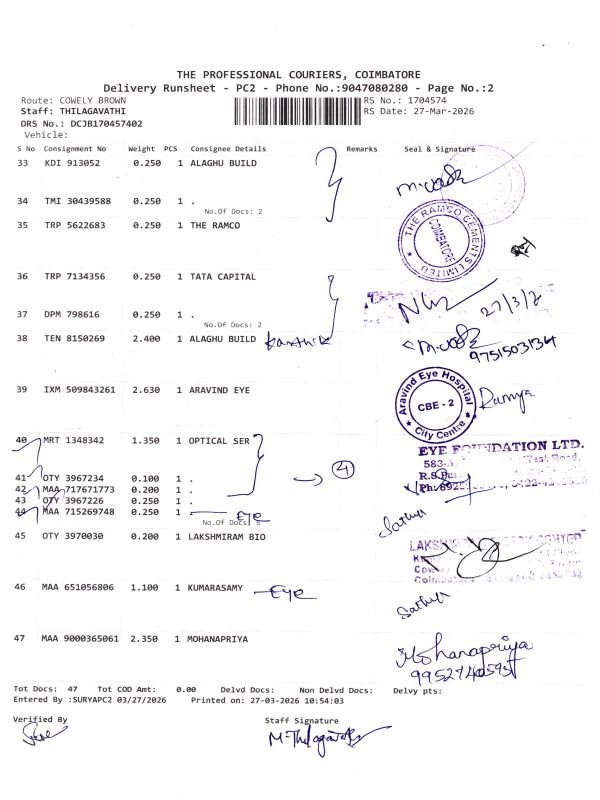 THE PROFESSIONAL COURIERS, COIMBATORE
Delivery Runsheet - PC2 - Phone No.:9047080280 - Page No.:2
Route: COWELY BROWN
RS No.: 1704574
Staff: THILAGAVATHI
RS Date: 27-Mar-2026
DRS No.: DCJB170457402
Vehicle:
S No Consignment No Weight PCS Consignee Details Remarks Seal & Signature
33 KDI 913052 0.250 1 ALAGHU BUILD
34 TMI 30439588 0.250 1 .
No.Of Docs: 2
35 TRP 5622683 0.250 1 THE RAMCO
THE RAMCO CEMENTS LIMITED
COIMBATORE
36 TRP 7134356 0.250 1 TATA CAPITAL
37 DPM 798616 0.250 1 .
27/3/2
No.Of Docs: 2
38 TEN 8150269 2.400 1 ALAGHU BUILD
9751503134
39 IXM 509843261 2.630 1 ARAVIND EYE
Aravind Eye Hospital
CBE - 2
City Centre
Ramya
40 MRT 1348342 1.350 1 OPTICAL SER
EYE FOUNDATION LTD.
583
West Road,
41 OTY 3967234 0.100 1 .
4
42 MAA 717671773 0.200 1 .
43 OTY 3967226 0.250 1 .
44 MAA 715269748 0.250 1 . Eye
No.Of Docs: 5
Sathya
45 OTY 3970030 0.200 1 LAKSHMIRAM BIO
46 MAA 651056806 1.100 1 KUMARASAMY Eye
Sathya
47 MAA 9000365061 2.350 1 MOHANAPRIYA
Mohanapriya
Tot Docs: 47 Tot COD Amt: 0.00 Delvd Docs: Non Delvd Docs: Delvy pts:
Entered By :SURYAPC2 03/27/2026 Printed on: 27-03-2026 10:54:03
Verified By
Staff Signature